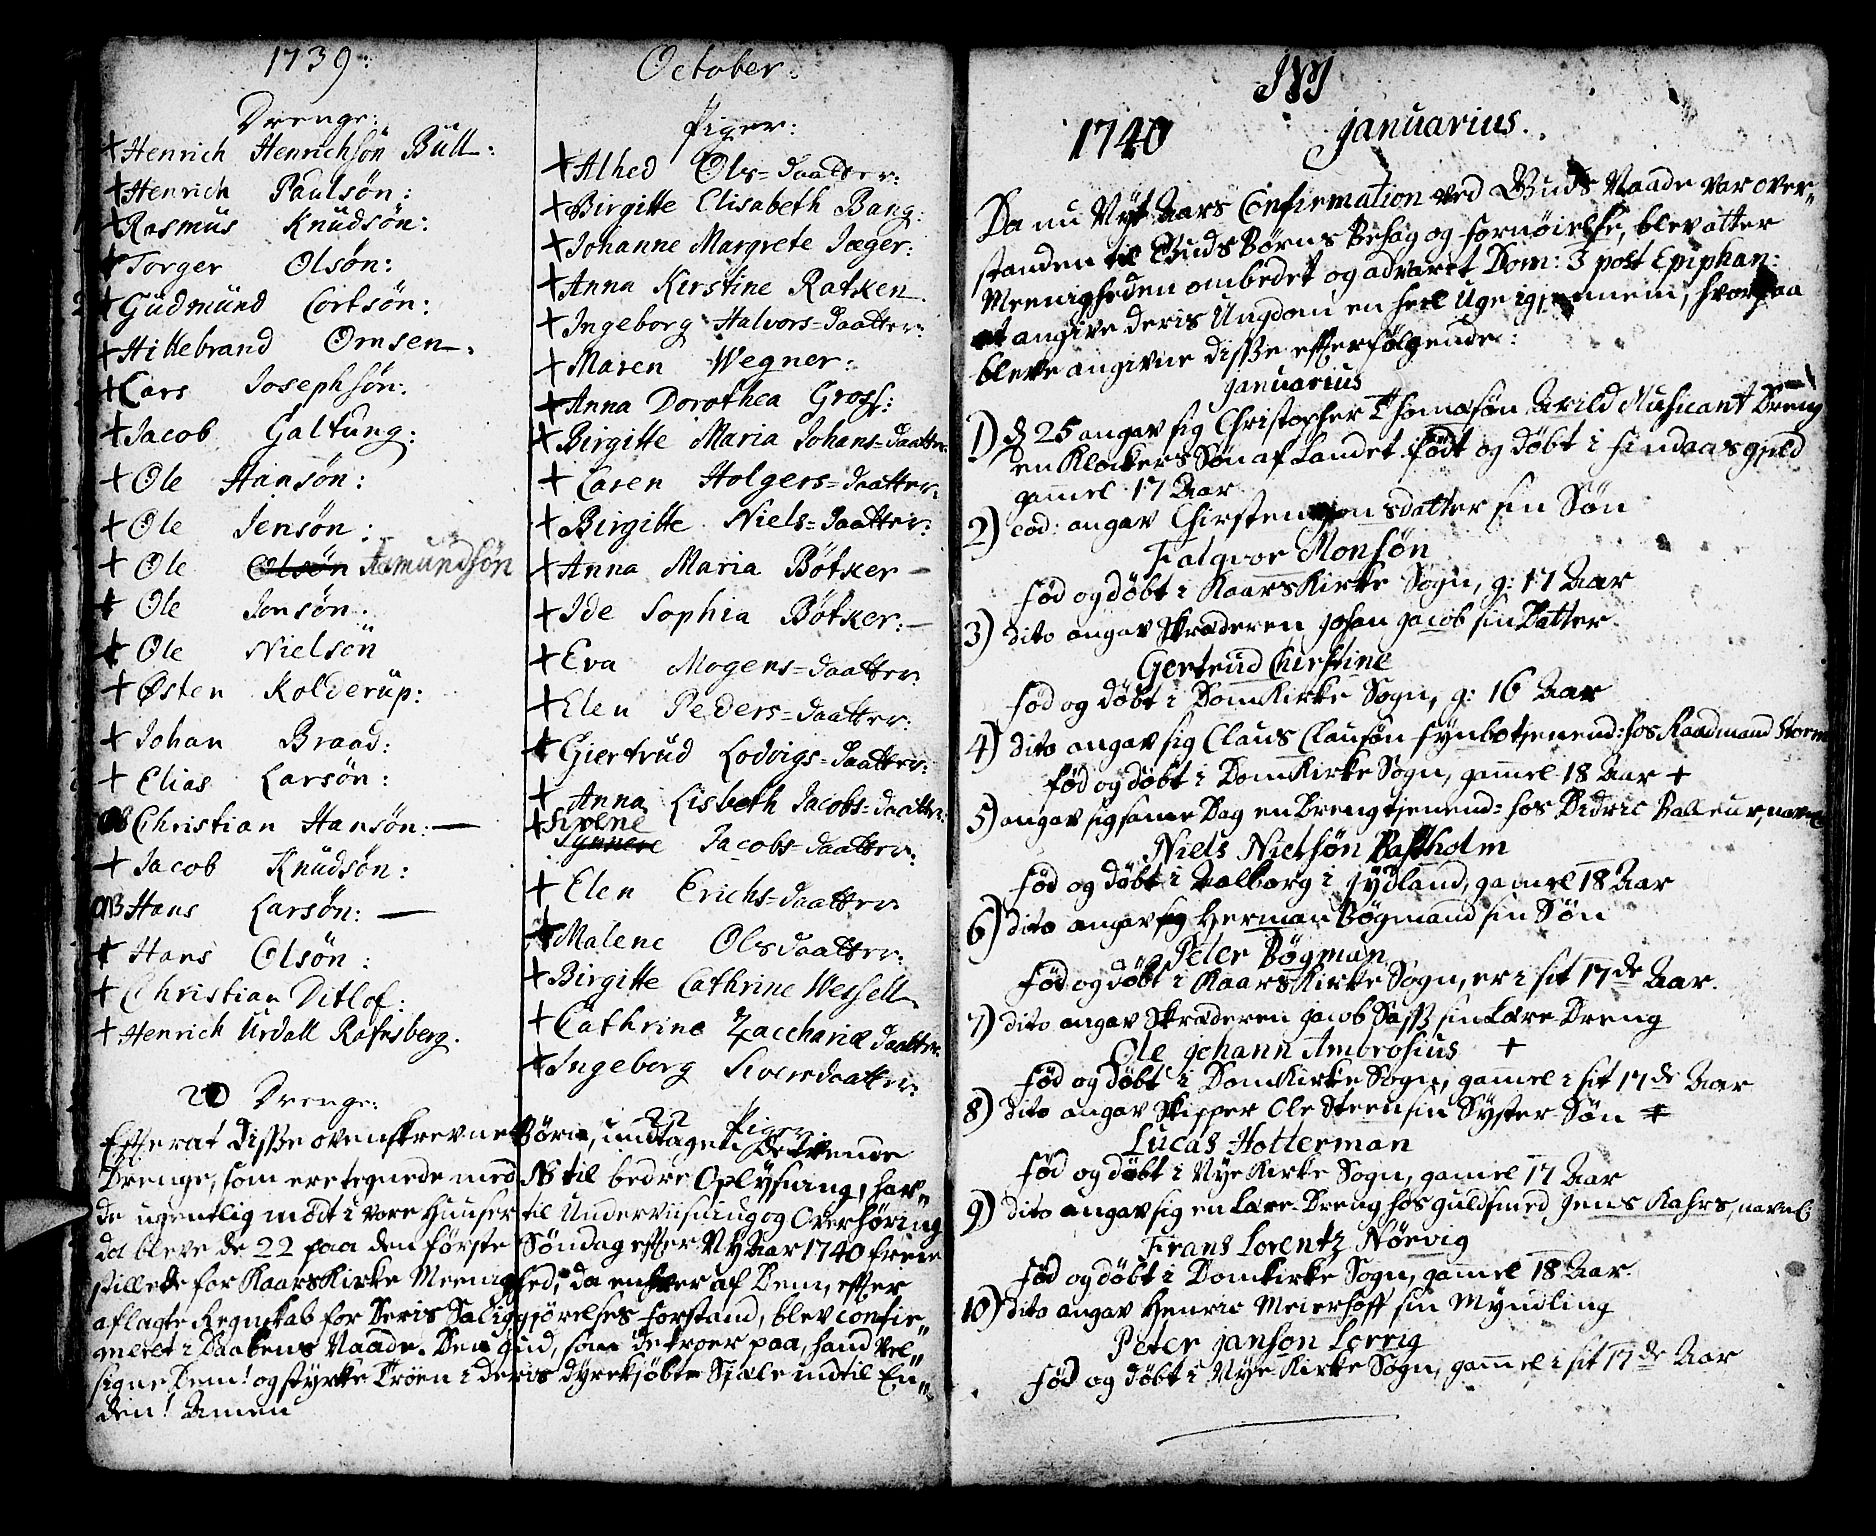 1739:
Drenge:
+ Henrich Henrichsön Büll:
+ Henrich Paulsøn:
+ Rasmus Knudsön:
+ Torger Olsøn:
+ Gudmünd Cortsön:
+ Hillebrand Ornsen
+ Lars Josephsøn:
+ Jacob Galtung:
+ Ole Hansøn:
+ Ole Jensøn:
+ Ole Olsön Amundsön
+ Ole Jonsøn:
+ Ole Nielsön
+ Østen Kolderup:
+ Johan Braad:
+ Elias Larsøn:
NB Christian Hansøn:
+ Jacob Knudsøn:
NB Hans Larsøn:
+ Hans Olsön:
+ Christian Ditlof:
+ Henrich Urdall Rafnsberg.
Drenge:
October:
Piger:
+ Alhed Ols=daatter:
+ Birgitte Elisabeth Bang:
+ Johanne Margrete Jæger:
+ Anna Kirstine Ratken
+ Ingeborg Halvors=daatter:
+ Maren Wegner:
+ Anna Dorothea Gross:
+ Birgitte Maria Johans=daatter
+ Caren Holgers=daatter:
+ Birgitte Niels=daatter:
+ Anna Maria Bötker
+ Ide Sophia Bötker:
+ Eva Mogens=daatter:
+ Elen Peders=daatter:
+ Giertrud Lodvigs=daatter:
+ Anna Lisbeth Jacobs=daatter:
+ Sirene
Synneve Jacobs=daatter:
+ Elen Erichs=daatter
+ Malene Olsdaatter:
+ Birgitte Cathrine Wessell
+ Cathrine Zacchariæ daatter
+ Ingeborg Siversdaatter:
22 Piger
Efterat disse ovenskrevne Börn, undtagen de tvende
Drenge, som ere tegnede med NB til bedre Oplysning, hav„
de ugentlig mödt i vore Huuser til Underviisning og Overhøring
da bleve de 22 paa den förste Söndag efter NyAar 1740 frem
stillede for KaarsKirke Meenighed, da enhver af Dem, efter
aflagte Regnskab for Deris Saliggjörelses forstand, blev confir„
meret i Daabens Naade. Den Gud, som de troer paa, hand vel„
signe Dem! og styrke Troen i deris dyrekjöbte Siæle indtil En„
den! Amen
JVJ
1740 Januarius.
Da nu Nyt Aars Confirmation ved Guds Naade var over„
standen til Guds Børns Behag og fornöielse, blev atter
Meenigheden ombedet og advaret Dom: 3 post Epiphan:
at angive deris Ungdom en heel Uge igjennem, hvorpaa
bleve angivne disse efterfølgende:
Januarius
1) d 25 angav sig Christopher Thomæsøn Arild Musicant Dreng
en Klockers Søn af Landet. födt og döbt i Hindaas gield
gammel 17 Aar
2) eod: angav Chirsten Monsdatter sin Søn
Falqvor Monsøn
föd og döbt i KaarsKirke Sogn, g: 17 Aar
3) dito angav Skræderen Johan Jacob sin Datter.
Gertrud Chirstine
föd og döbt i DomKirke Sogn, g: 16 Aar
4) dito angav sig Claus Clausøn fynbo tjenend: hos Raadmand Storm
föd og döbt i DomKirke Sogn, gammel 18 Aar +
5) angav sig samme Dag en Dreng tjenend: hos Didric Balleur, navnl
Niels Nielsøn Bastholm
föd og döbt i Aalborg i Jydland, gammel 18 Aar
6) dito angav sig Herman Bögmand sin Søn
Peter Bögman
föd og döbt i KaarsKirke Sogn, er i sit 17de Aar.
7) dito angav Skræderen Jacob Sass sin Lære Dreng
Ole Johann Ambrosius +
föd og döbt i DomKirke Sogn, gammel i sit 17de Aar
8) dito angav Skipper Ole Steen sin Syster Søn +
Lucas Hotterman
föd og döbt i Nye Kirke Sogn, gammel 17 Aar
9) dito angav sig en Lære-Dreng hos guldsmed Jens Kahrs, navnl
Frans Lorentz Nörvig
föd og döbt i Domkirke Sogn, gammel 18 Aar.
10) dito angav Henric Meierhoff sin Myndling
Peter Janson Lorrig
föd og döbt i Nye Kirke Sogn, gammel i sit 17de Aar